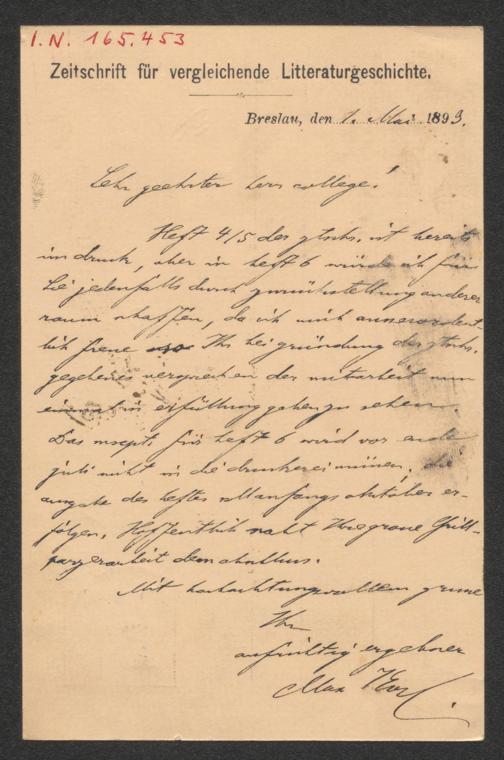 I.N. 165.453
Zeitschrift für vergleichende Litteraturgeschichte.
Breslau, den 1. Mai 1893.
Sehr geehrter herr college!
Heft 4/5 der ztschr. ist bereits
im druck, aber in heft 6 würde ich für
Sie jedenfalls durch zurückstellung anderer
raum schaffen, da ich mich ausserordent-
lich freue Ihr bei gründung der ztschr.
gegebenes versprechen der mitarbeit nun
in erfüllung gehen zu sehen.
Das mscpt. für heft 6 wird vor ende
juli nicht in die druckerei müssen, die
ausgabe des heftes soll anfangs oktober er-
folgen. Hoffentlich naht Ihre grosse Grill-
parzerarbeit dem abschluss.
Mit hochachtungsvollem grusse
Ihr
aufrichtig ergebener
Max Koch.